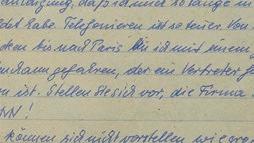 daß ich mich so lange in
det habe. Telefonieren ist so teuer. Von
ken bis nach Paris bin ich mit einem
gefahren, der ein Vertreter
en ist. Stellen Sie sich vor, die Firma
können sich nicht vorstellen wie